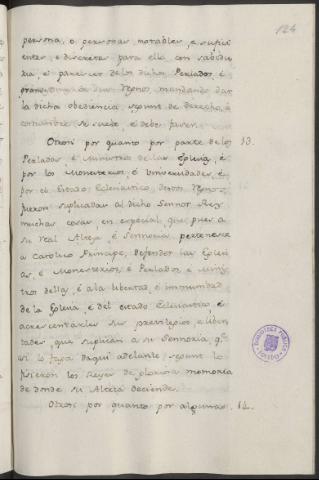 124
persona, o personas notables, e sufici
entes, e discretas para ella con sabidu
ria, e parescer de los dichos Perlados, é
destos sus Regnos mandando dar
la dicha obediencia segunt de derecho, é
costumbre se suele, é debe facer.
Otrosi por quanto por parte de los 13.
Perlados, é Ministros de las Eglesias, é
por los Monesterios, é Universidades, é
por el Estado Eclesiastico destos Regnos
fueron suplicadas al dicho Sennor Rey
muchas cosas en especial que pues a
su Real Alteza é Sennoria pertenesce
a Catolico Principe, defender las Egle
sias, é Monesterios, é Perlados é minis
tros dellas, é a la libertad, é inmunidad
de la Eglesia, é del estado Eclesiastico é
acrescentarles sus previlegios é liber
tades, que suplican a su Sennoria, qe
asi lo faga daqui adelante, segunt lo
ficieron los Reyes de gloriosa memoria
de donde su Alteza deciende.
Otrosi por quanto por algunas 14.
BIBLIOTECA PUBLICA
TOLEDO